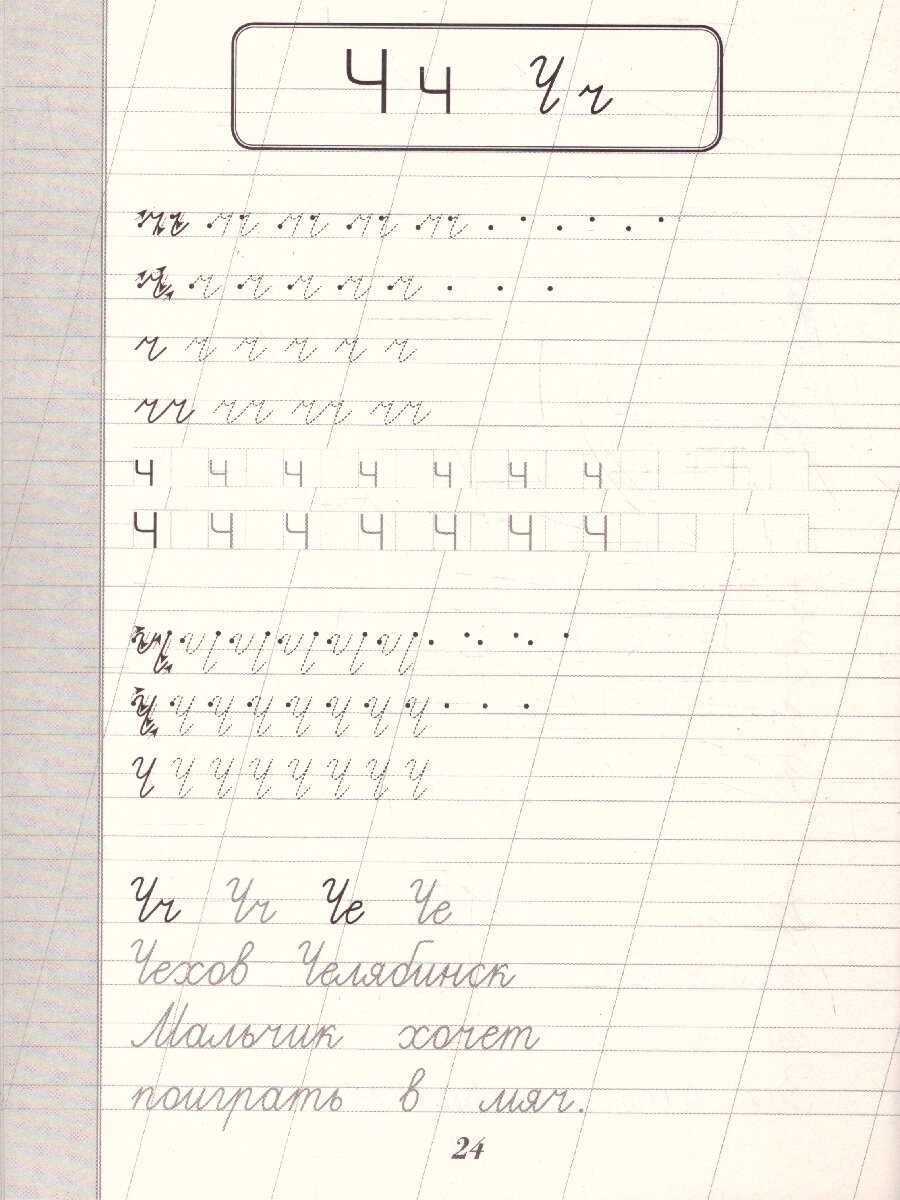 Ч ч Ч ч
ч ч ч ч ч ч
ч ч ч ч ч ч
чч чч чч чч
ч ч ч ч ч ч ч
Ч Ч Ч Ч Ч Ч Ч
Ч Ч Ч Ч Ч Ч Ч Ч
Ч Ч Ч Ч Ч Ч Ч Ч
Чч Чч Че Че
Чехов Челябинск
Мальчик хочет
поиграть в мяч.
24